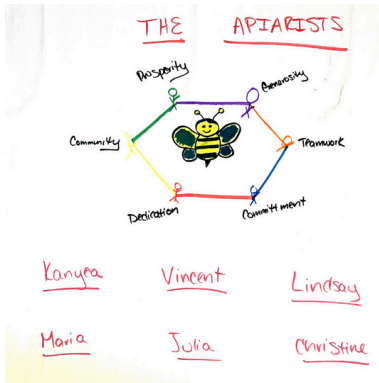 THE APIARISTS
Prosperity Generosity
Community Teamwork
Dedication Committment
Kanyea Vincent Lindsay
Maria Julia Christine